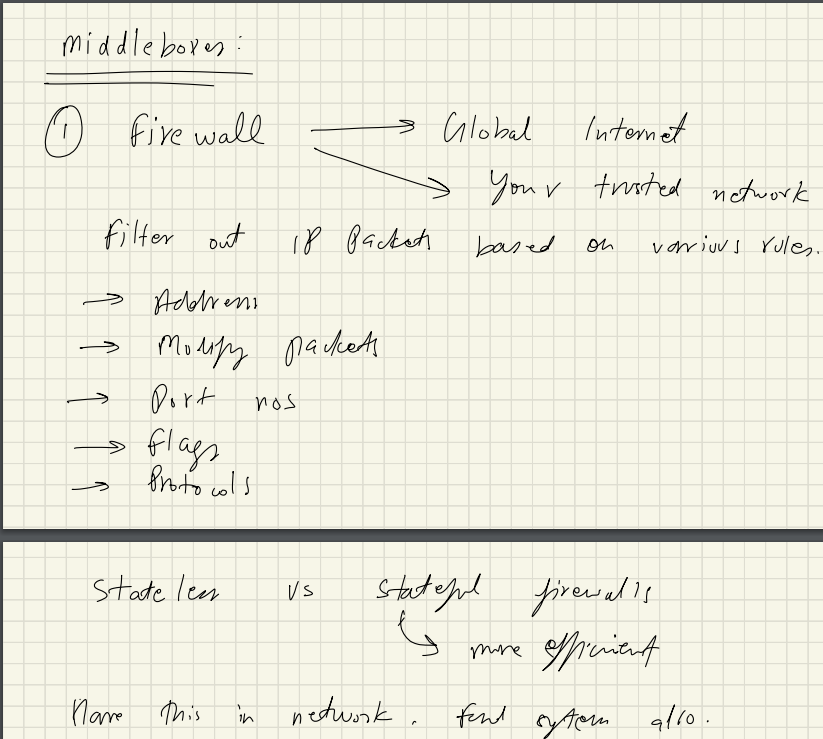 Middleboxes:
① Firewall → Global Internet
→ Your trusted network
Filter out IP Packets based on various rules.
→ Address
→ Modify packets
→ Port nos
→ Flags
→ Protocols
Stateless vs stateful firewalls
↳ more efficient
Have this in network. system also.